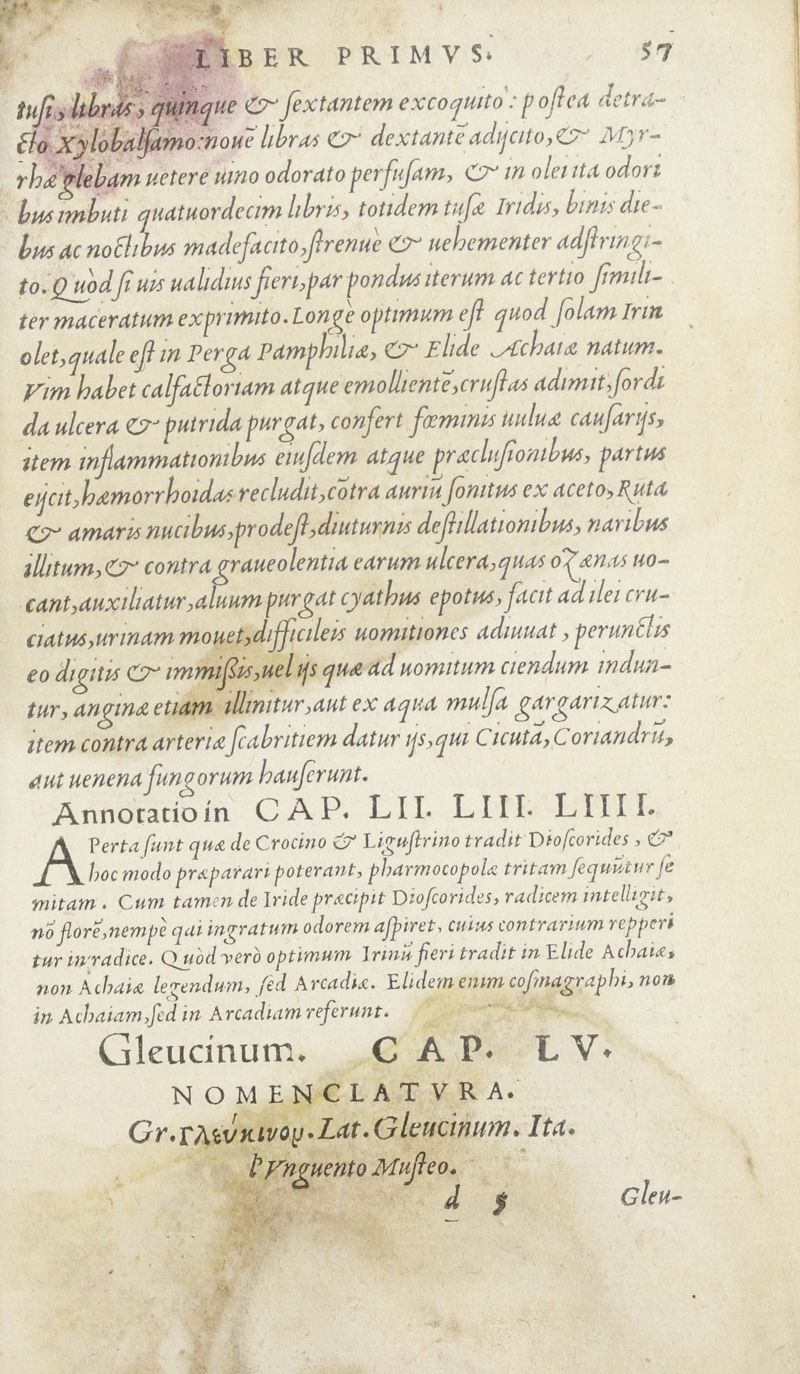 LIBER PRIMVS. 57
tusi, libras, quinque & sextantem excoquito : postea detra-
cto Xylobalsamo: nouē libras & dextantē adijcito, & Myr-
rhæ glebam uetere uino odorato perfusam, & in olei ita odori
bus imbuti quatuordecim libris, totidem tusæ Iridis, binis die-
bus ac noctibus madefacito, strenuè & uehementer adstringi-
to. Quòd si uis ualidius fieri, par pondus iterum ac tertio simili-
ter maceratum exprimito. Longè optimum est quod solam Irin
olet, quale est in Perga Pamphiliæ, & Elide Achaiæ natum.
Vim habet calfactoriam atque emollientē, crustas adimit, sordi
da ulcera & putrida purgat, confert fœminis uuluæ causarijs,
item inflammationibus eiusdem atque præclusionibus, partus
eijcit, hæmorrhoidas recludit, cōtra auriū sonitus ex aceto, Ruta
& amaris nucibus, prodest, diuturnis destillationibus, naribus
illitum, & contra graueolentia earum ulcera, quas ozænas uo-
cant, auxiliatur, aluum purgat cyathus epotus, facit ad ilei cru-
ciatus, urinam mouet, difficileis uomitiones adiuuat, perunctis
eo digitis & immißis, uel ijs quæ ad uomitum ciendum indun-
tur, anginæ etiam illinitur, aut ex aqua mulsa gargarizatur:
item contra arteriæ scabritiem datur ijs, qui Cicutā, Coriandrū,
aut uenena fungorum hauserunt.
Annotatio in CAP. LII. LIII. LIIII.
APerta sunt quæ de Crocino & Ligustrino tradit Dioscorides, &
hoc modo præparari poterant, pharmocopolæ tritam sequūtur se
mitam. Cum tamen de Iride præcipit Dioscorides, radicem intelligit,
nō florē, nempè qui ingratum odorem aspiret, cuius contrarium repperi
tur in radice. Quòd verò optimum Irinū fieri tradit in Elide Achaiæ,
non Achaiæ legendum, sed Arcadiæ. Elidem enim cosmagraphi, non
in Achaiam, sed in Arcadiam referunt.
Gleucinum. CAP. LV.
NOMENCLATVRA.
Gr. Γλεύκινον. Lat. Gleucinum. Ita.
l'Vnguento Musteo.
d 5 Gleu-